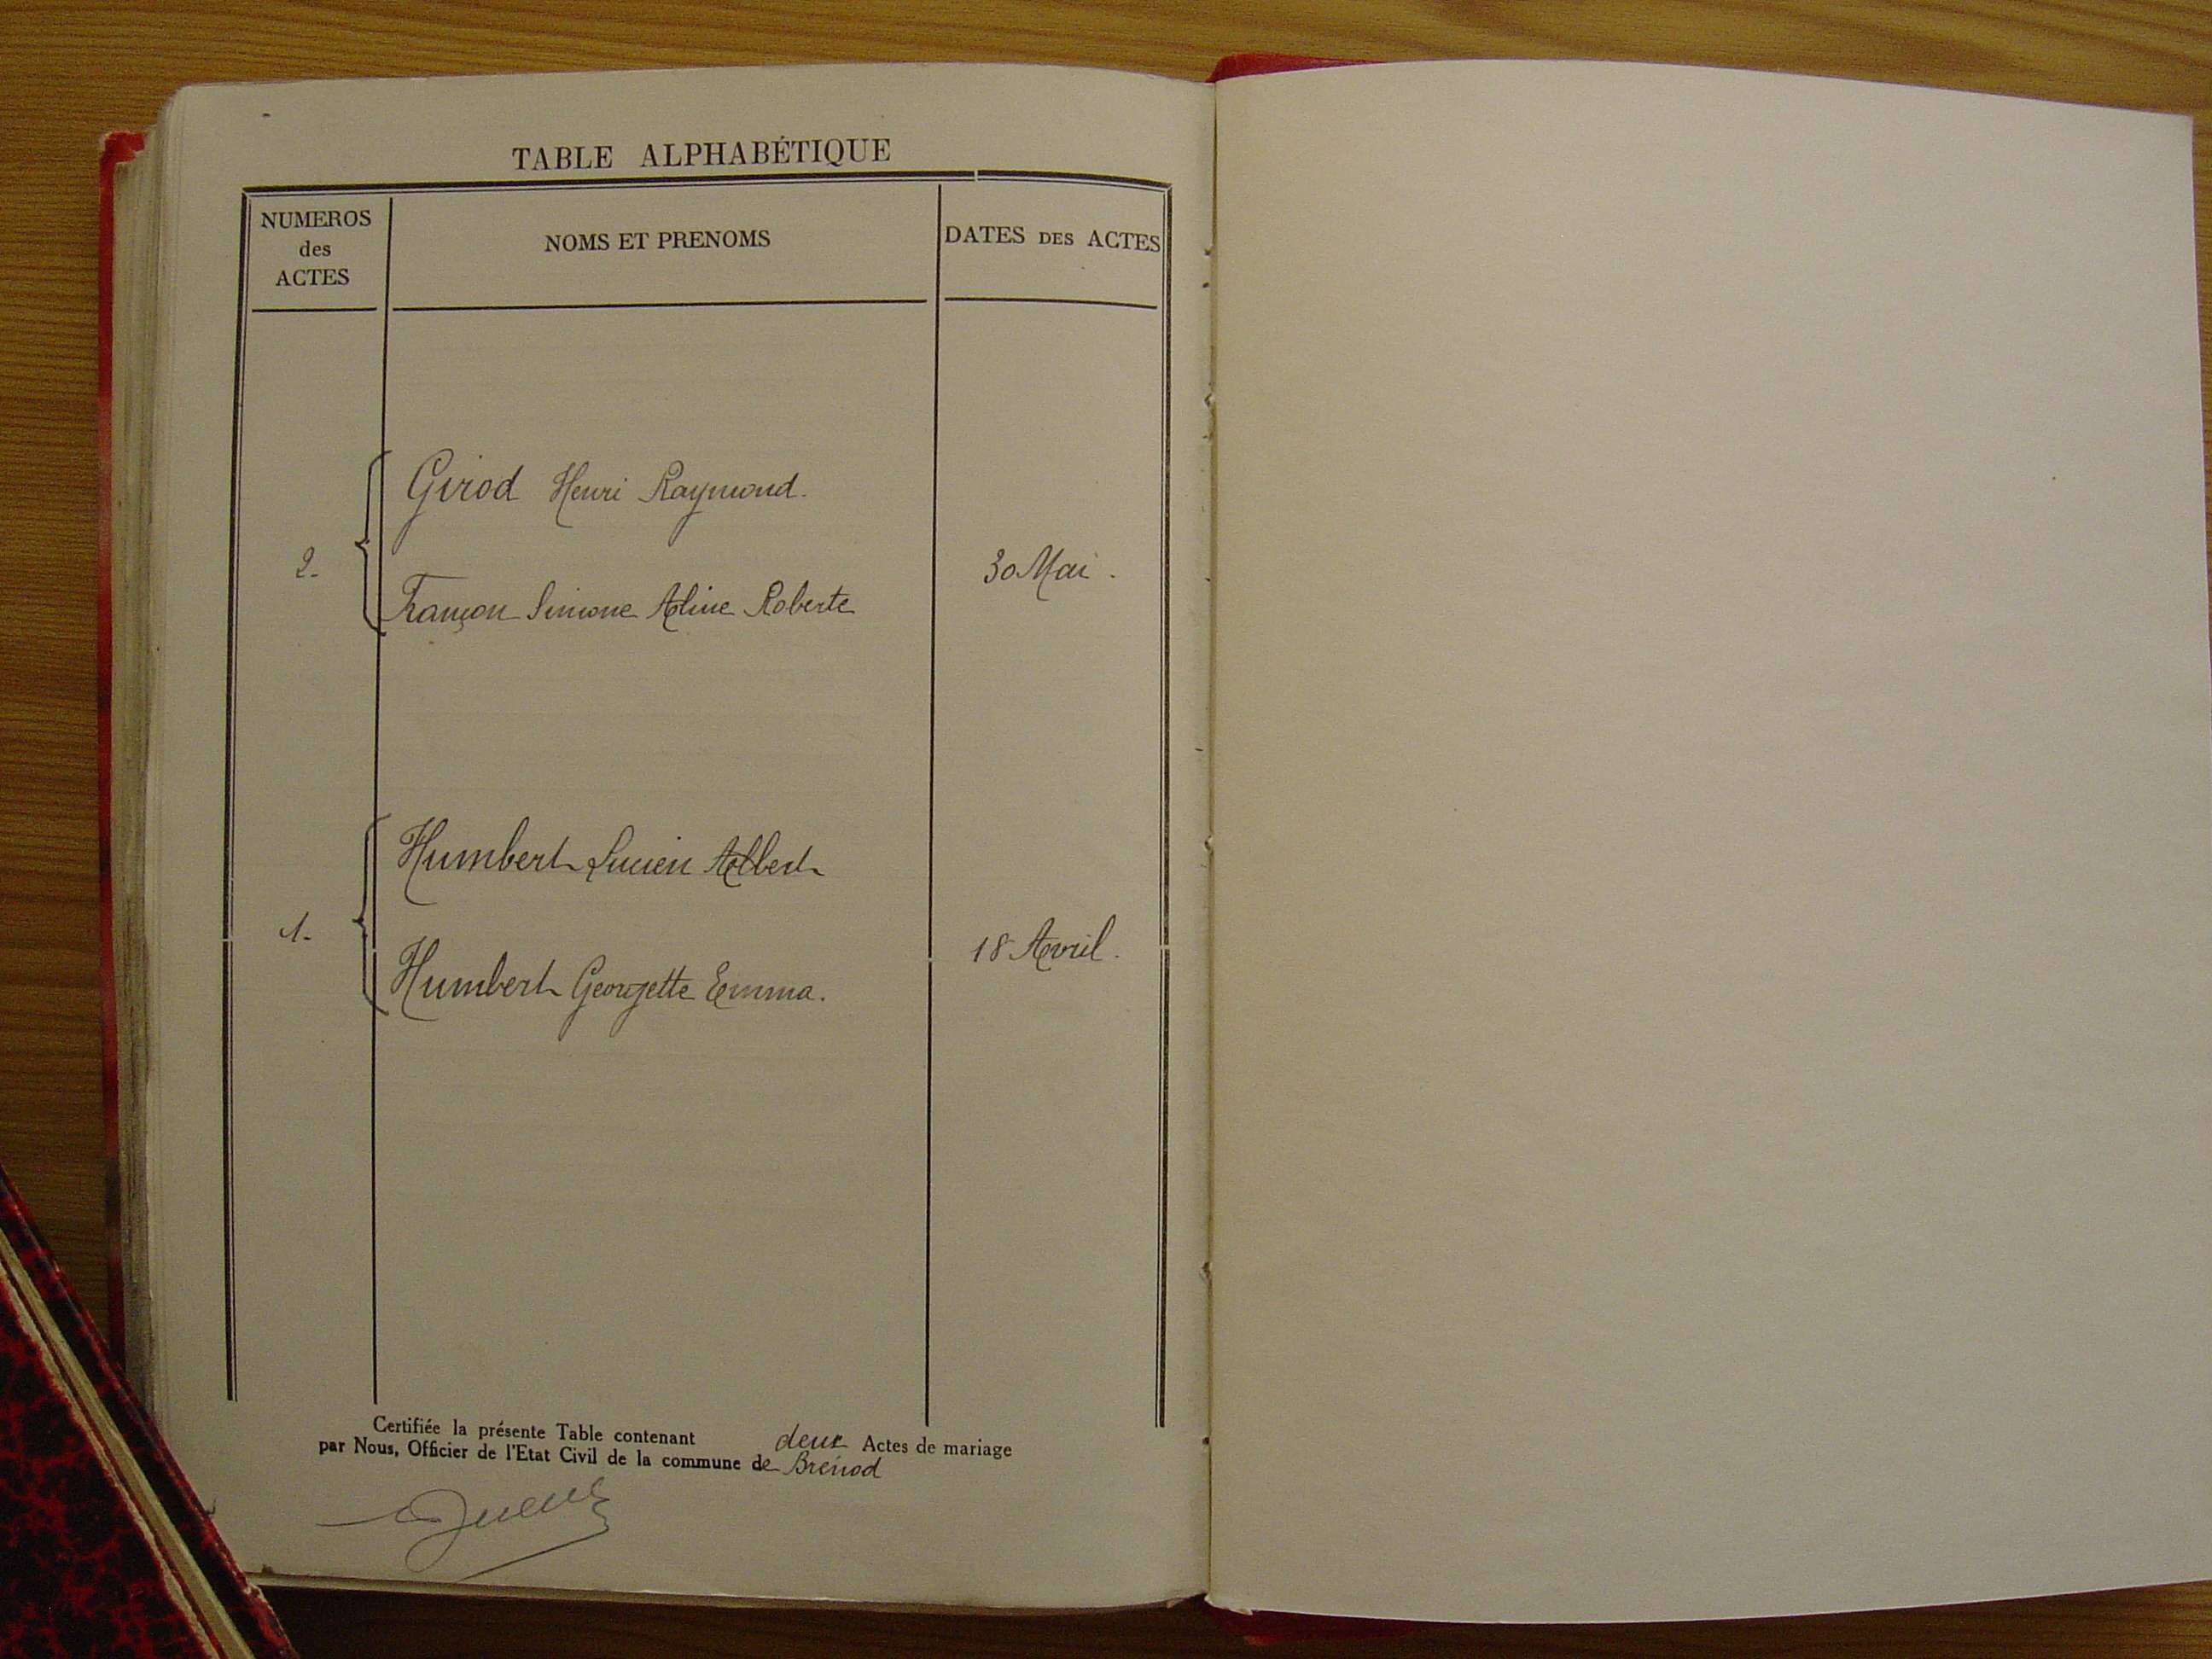 TABLE ALPHABÉTIQUE
NUMEROS
des
ACTES
NOMS ET PRENOMS
DATES DES ACTES
Girod Henri Raymond.
2.
30 Mai.
Françon Simone Aline Roberte
Humbert Lucien Albert
1.
18 Avril.
Humbert Georgette Emma.
Certifiée la présente Table contenant deux Actes de mariage
par Nous, Officier de l'Etat Civil de la commune de Brénod